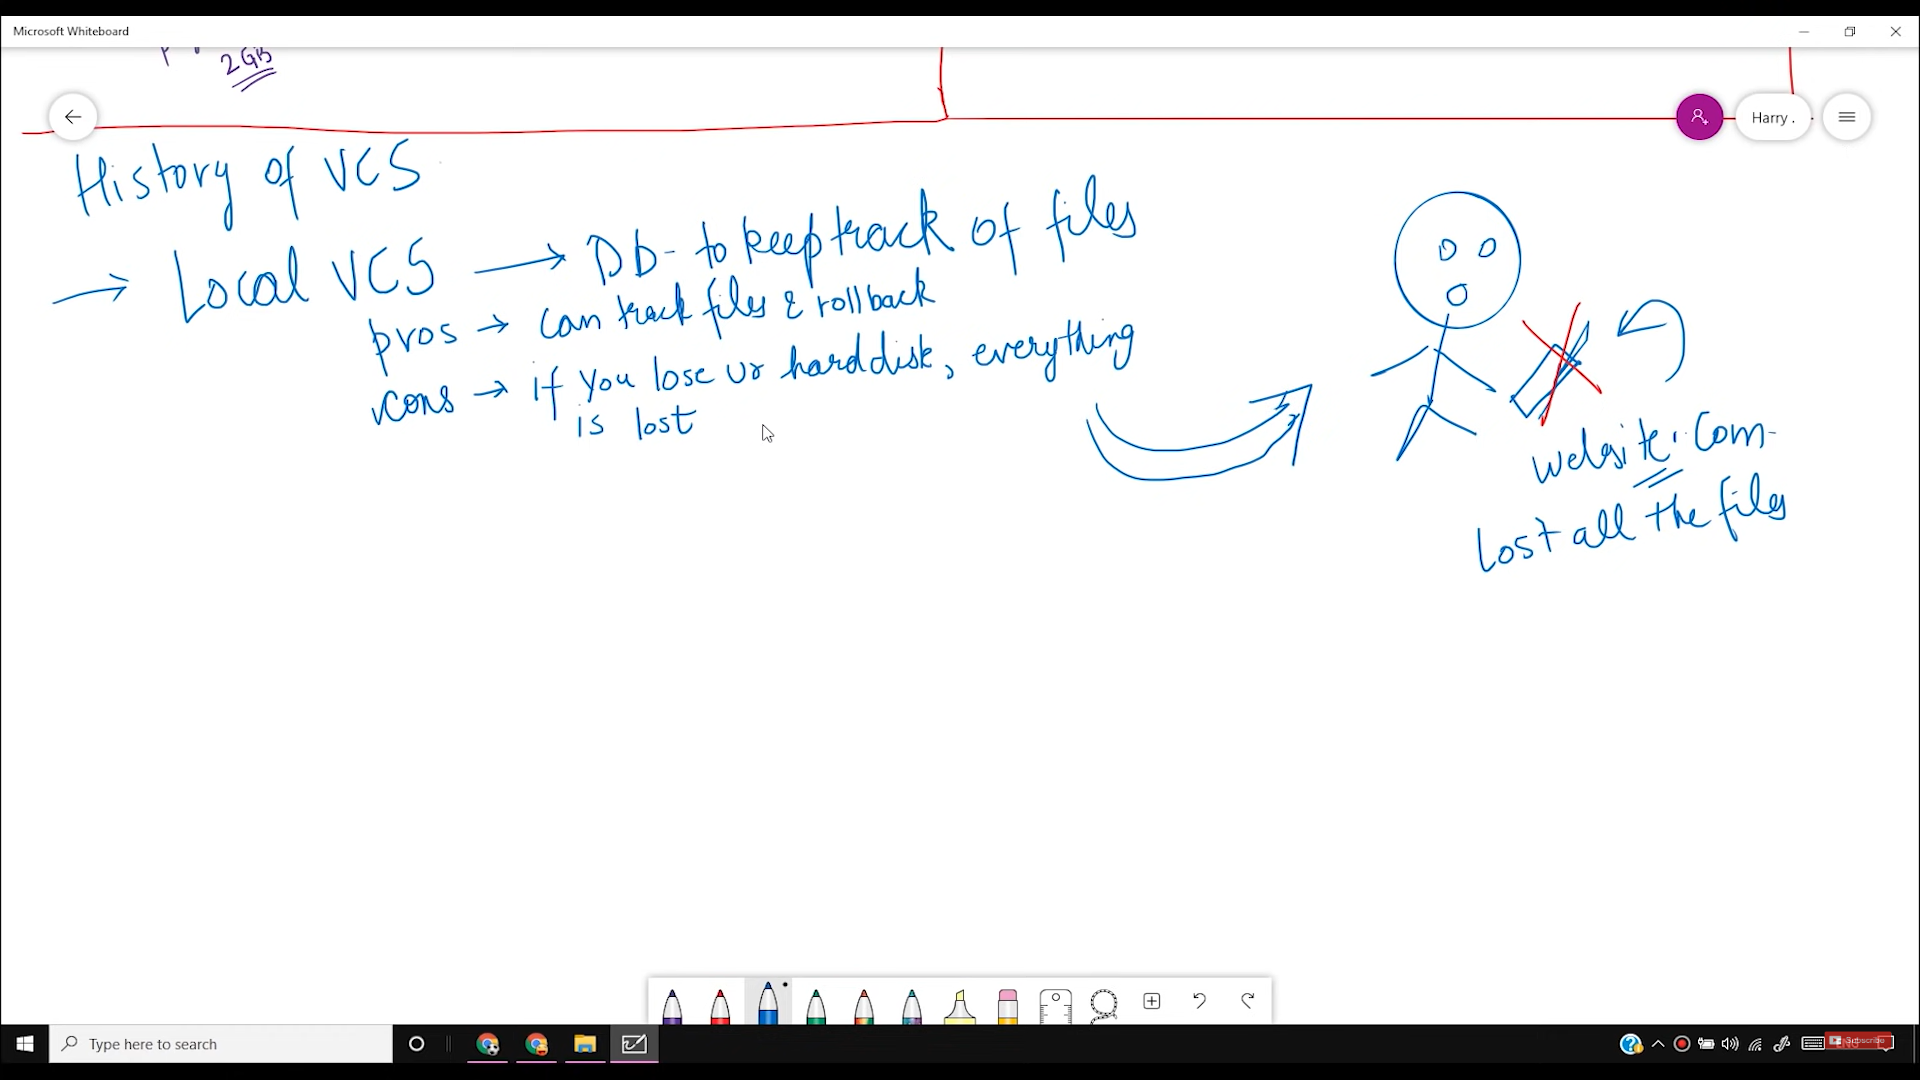 Microsoft Whiteboard
2GB
Harry .
History of VCS
→ Local VCS → Db - to keep track of files
pros → can track files & rollback
cons → if you lose ur harddisk, everything
is lost
website.com
Lost all the files
Type here to search
Subscribe